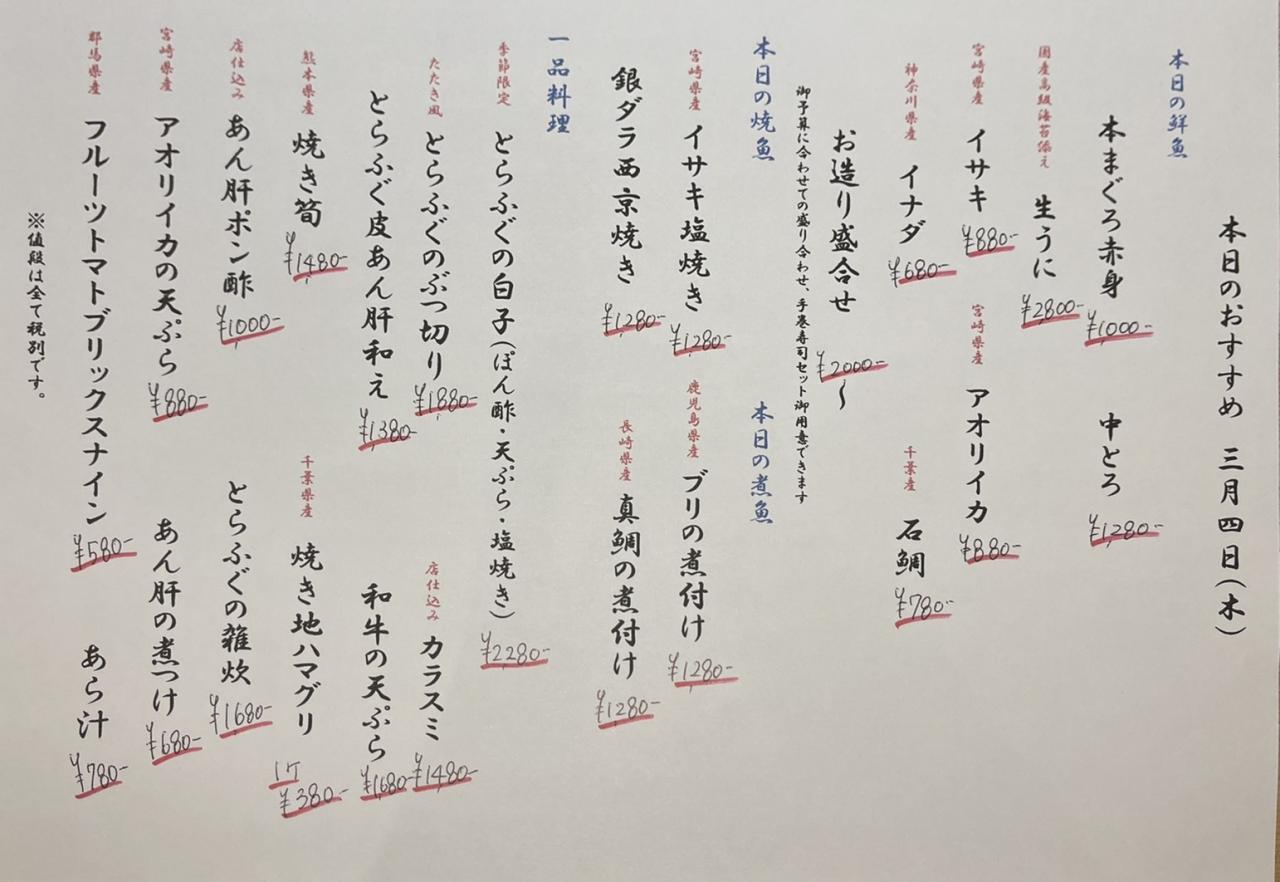 本日のおすすめ 三月四日(木)
本日の鮮魚
本まぐろ赤身 ¥1,000- 中とろ ¥1,280-
国産高級海苔添え 生うに ¥2,800-
宮崎県産 イサキ ¥880- 宮崎県産 アオリイカ ¥880-
神奈川県産 イナダ ¥680- 千葉産 石鯛 ¥780-
お造り盛合せ ¥2000-〜
御予算に合わせての盛り合わせ、手巻寿司セット御用意できます
本日の焼魚 本日の煮魚
宮崎県産 イサキ塩焼き ¥1,280- 鹿児島県産 ブリの煮付け ¥1,280-
銀ダラ西京焼き ¥1,280- 長崎県産 真鯛の煮付け ¥1,280-
一品料理
季節限定 とらふぐの白子(ぽん酢・天ぷら・塩焼き) ¥2,280-
たたき風 とらふぐのぶつ切り ¥1,880- 店仕込み カラスミ ¥1,480-
とらふぐ皮あん肝和え ¥1,380- 和牛の天ぷら ¥1,680-
熊本県産 焼き筍 ¥1,480- 千葉県産 焼き地ハマグリ 1ケ ¥380-
店仕込み あん肝ポン酢 ¥1,000- とらふぐの雑炊 ¥1,680-
宮崎県産 アオリイカの天ぷら ¥880- あん肝の煮つけ ¥680-
群馬県産 フルーツトマトブリックスナイン ¥580- あら汁 ¥780-
※値段は全て税別です。